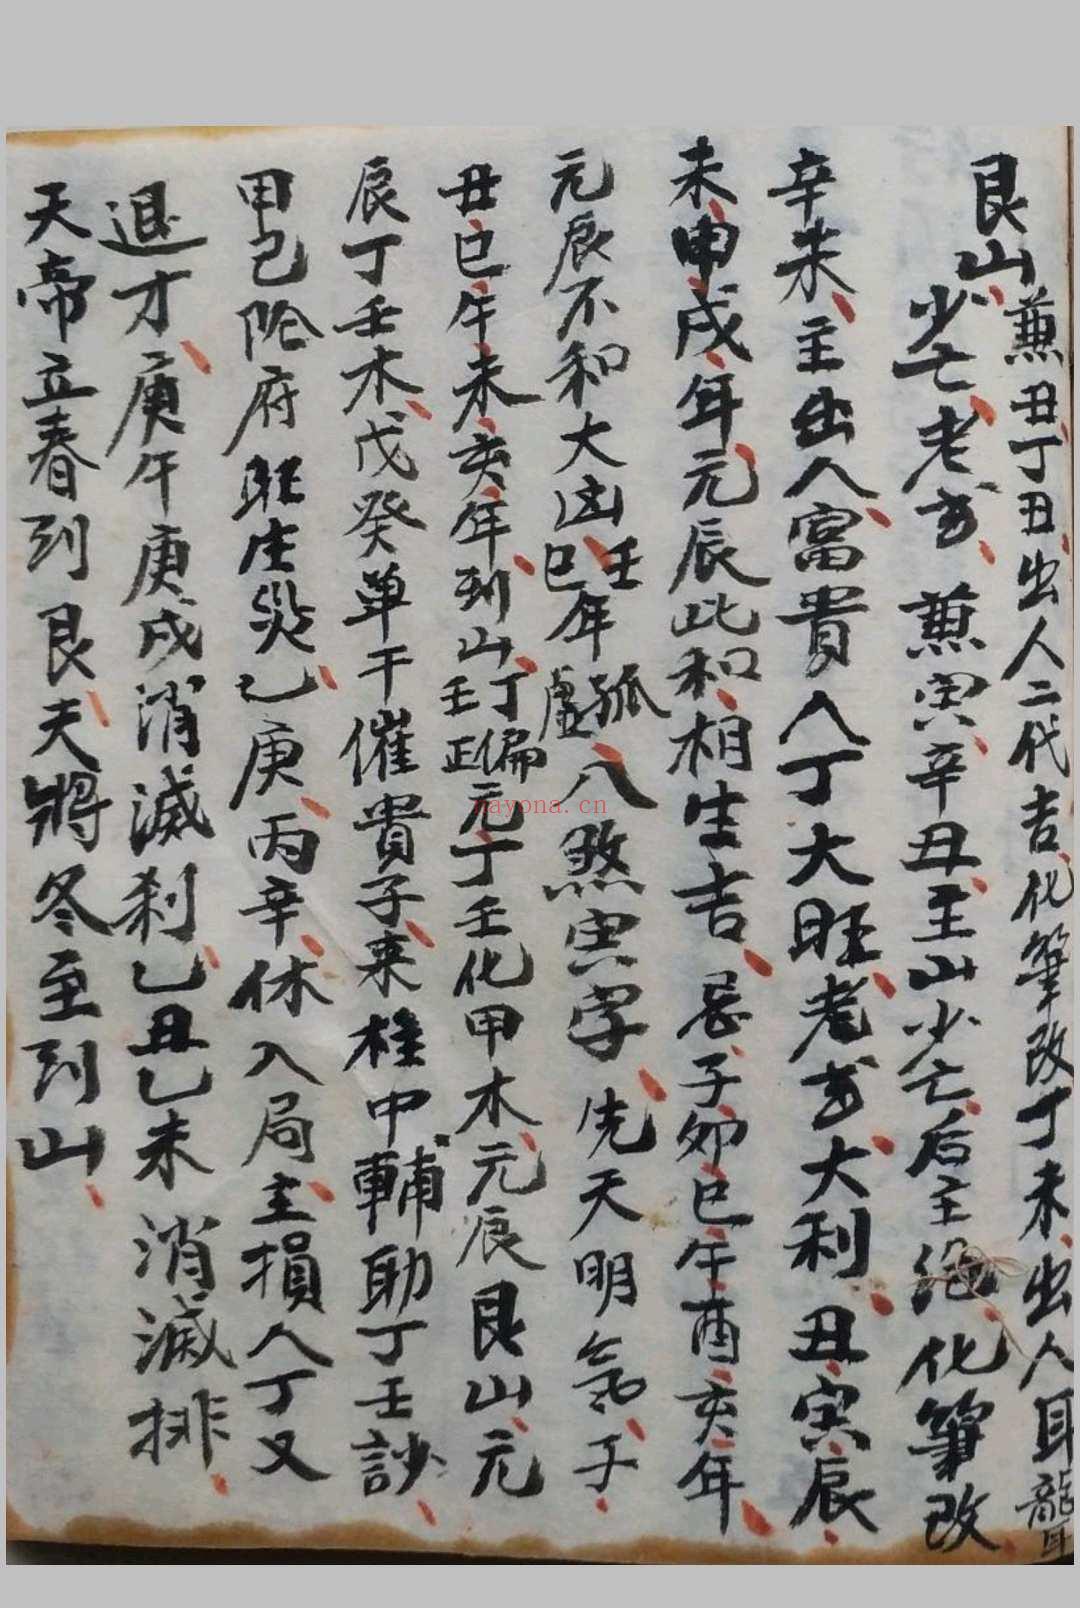 艮山兼丑丁丑出人二代吉化筆改丁未出人耳聾
少亡老吉兼寅辛丑至山少亡后主絕化筆改
辛未主出人富貴人丁大旺老吉大利丑寅辰
未申戌年元辰比和相生吉忌子卯巳午酉亥年
元辰不和大凶壬巳年孤虛八煞寅字先天明氣子
丑巳午未亥年到山丁偏壬正元丁壬化甲木元辰艮山元
辰丁壬木戊癸單干催貴子來桂中輔助丁壬訬
甲己阴府旺庄災乙庚丙辛休入局主損人丁又
退才庚午庚戌消滅剎乙丑乙未消滅排
天帝立春到艮夫將冬至到山
nayona.cn